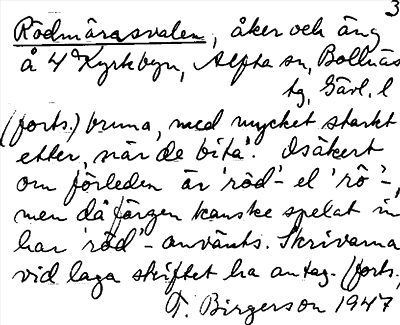 3
Rödmärasvalen, åker och äng
å 4 Kyrkbyn, Alfta sn, Bollnäs
tg, Gävl. l
(forts.) bruna, med mycket starkt
etter, när de bita'. Osäkert
om förleden är 'röd'- el 'rö'-,
men då färgen kanske spelat in
har 'röd'- använts. Skrivarna
vid laga skiftet ha antag- (forts.)
T. Birgerson 1947